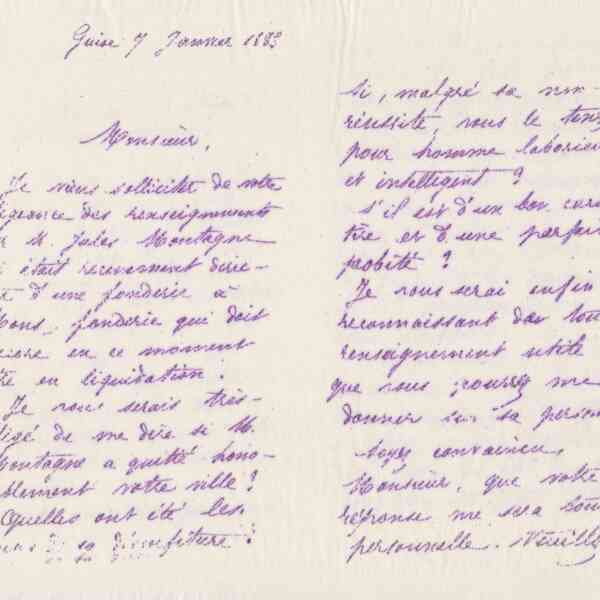 Guise 7 Janvier 1883
Monsieur,
Je viens solliciter de votre
ligeance des renseignements
M. Jules Montagne
i était récemment direc-
d'une fonderie à
Mons, fonderie qui doit
en ce moment
re en liquidation.
Je vous serais très-
ligé de me dire si M.
Montagne a quitté hono-
blement votre ville ?
Quelles ont été les
de sa déconfiture ?
Si, malgré sa non-
réussite, vous le tenez
pour homme laborieu
et intelligent ?
S'il est d'un bon carac
tère et d'une parfai
probité ?
Je vous serai enfin
reconnaissant de tou
renseignement utile
que vous pourrez me
donner sur sa person
Soyez convaincu,
Monsieur, que votre
réponse me sera tou
personnelle. Veuille